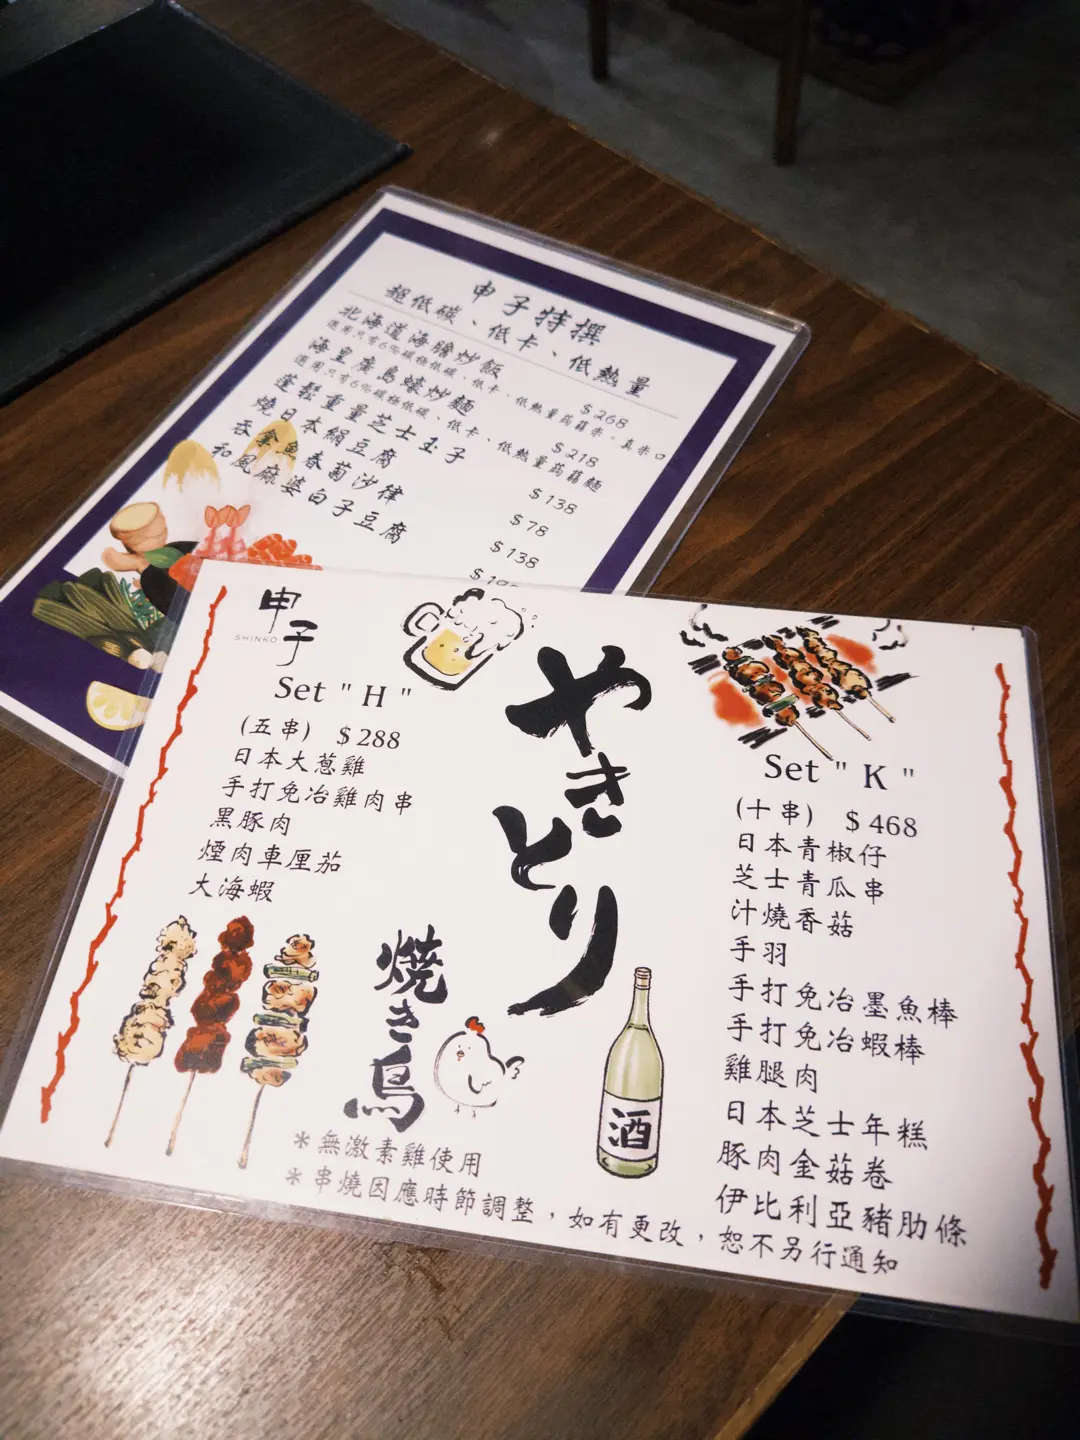 申子特撰
超低碳、低卡、低熱量
北海道海膽炒飯 $268
選用只有6%碳極低碳、低卡、低熱量蒟蒻米,真米口
海皇廣島蠔炒麵 $218
選用只有6%碳極低碳、低卡、低熱量蒟蒻麵
蓬鬆重量芝士玉子 $138
燒日本絹豆腐 $78
吞拿魚春菊沙律 $138
和風麻婆白子豆腐
申子
SHINKO
Set "H"
(五串) $288
日本大蔥雞
手打免冶雞肉串
黑豚肉
煙肉車厘茄
大海蝦
やきとり
焼き鳥
酒
Set "K"
(十串) $468
日本青椒仔
芝士青瓜串
汁燒香菇
手羽
手打免冶墨魚棒
手打免冶蝦棒
雞腿肉
日本芝士年糕
豚肉金菇卷
伊比利亞豬肋條
*無激素雞使用
*串燒因應時節調整,如有更改,恕不另行通知